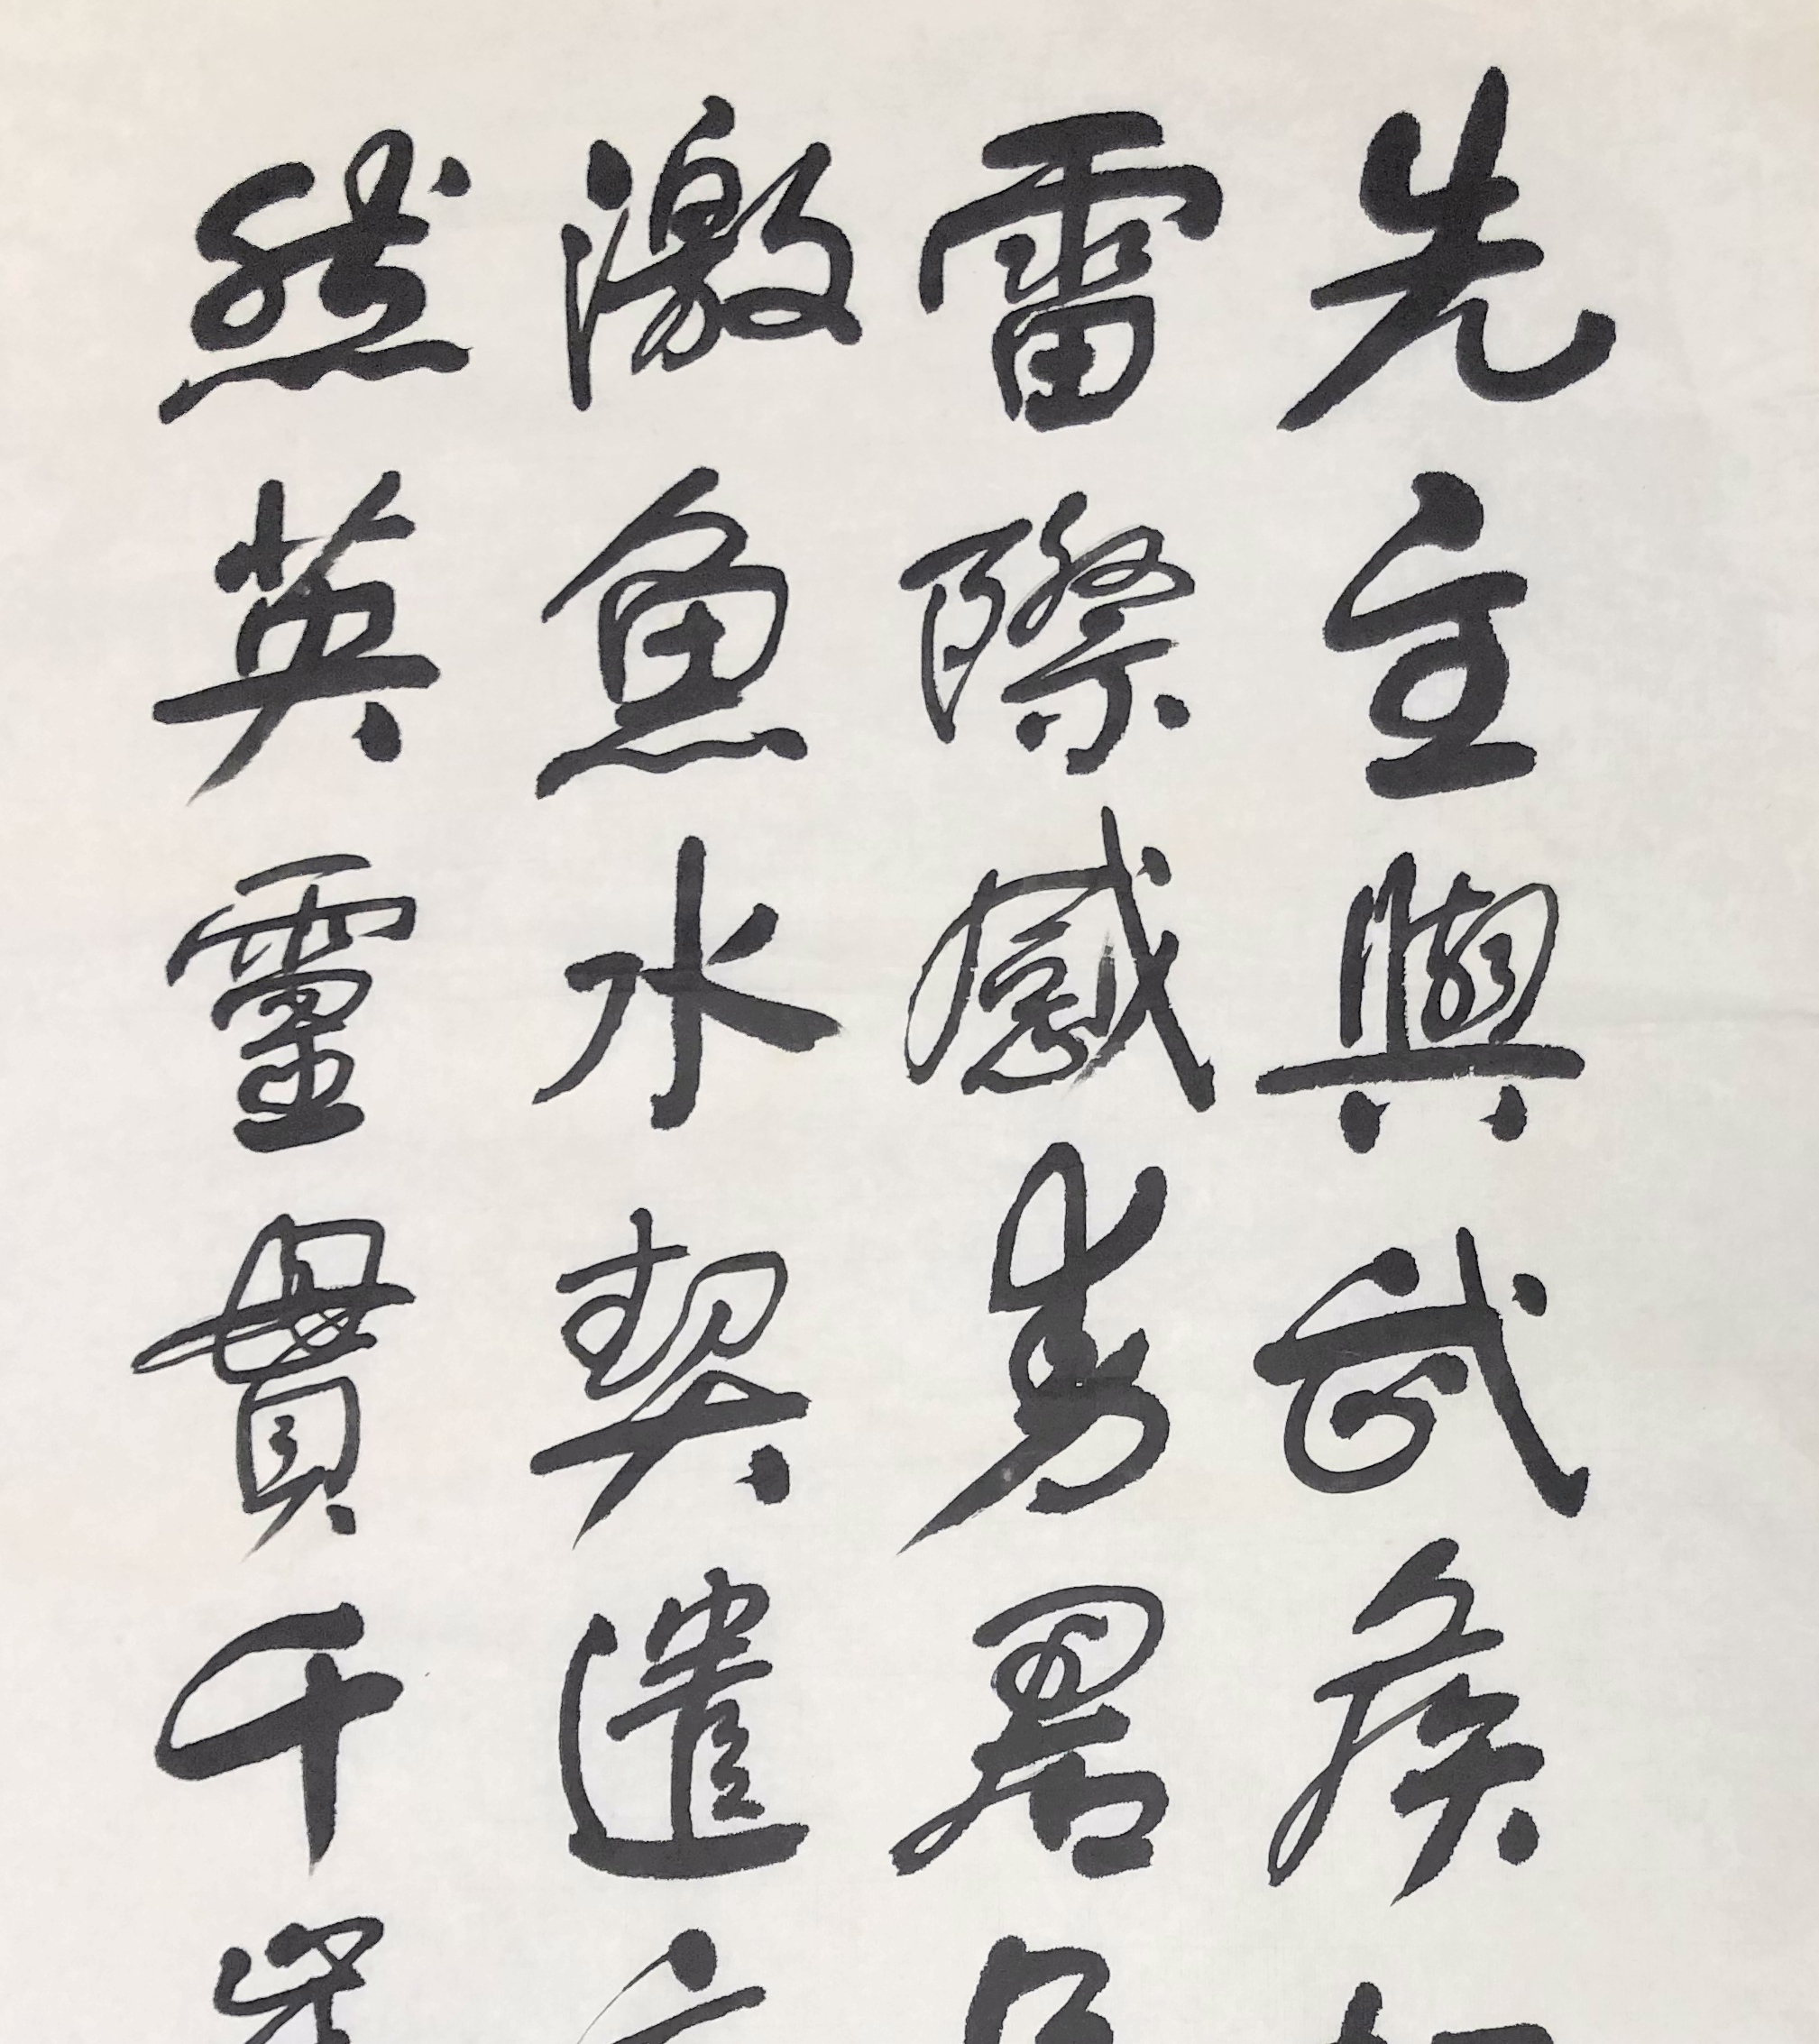 先主與武侯
雷際感君
激魚水契遺
然英靈貫千